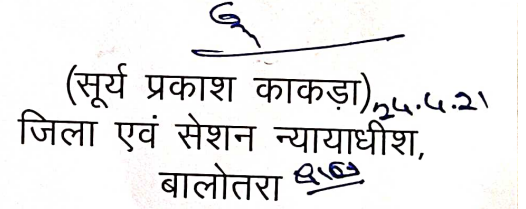 (सूर्य प्रकाश काकड़ा) 24.4.21
जिला एवं सेशन न्यायाधीश,
बालोतरा